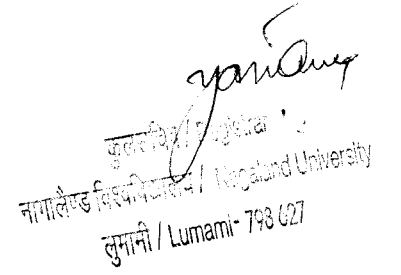 कुलसचिव / Registrar
नागालैण्ड विश्वविद्यालय / Nagaland University
लुमामी / Lumami- 798 627